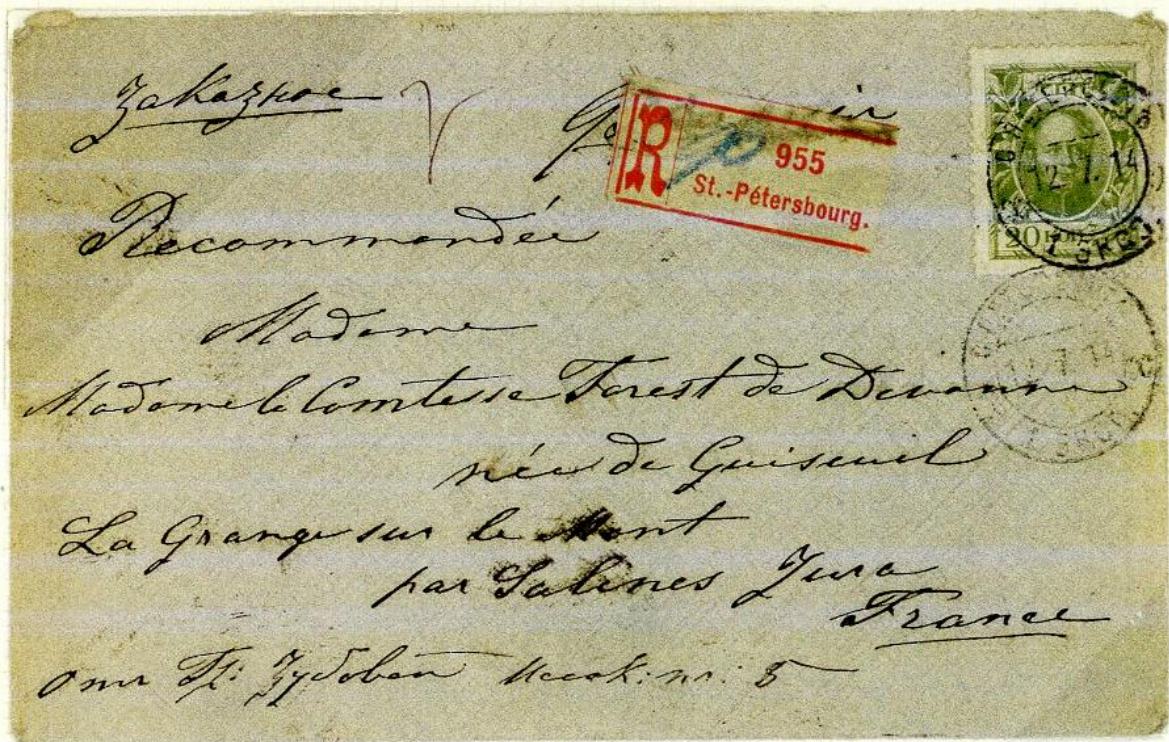 Заказное
R 955
St.-Pétersbourg.
12.7.14
20 КОП
Recommandée
Madame
Madame la Comtesse Forest de Divonne
née de Guiseuil
La Grange sur le Mont
par Salines Jura
France
отъ